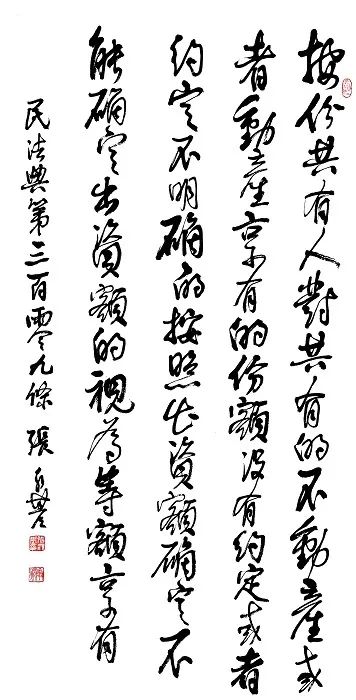 按份共有人對共有的不動產或
者動產享有的份額没有约定或者
约定不明确的按照出資額确定不
能确定出資額的視為等額享有
民法典第三百零九條 張